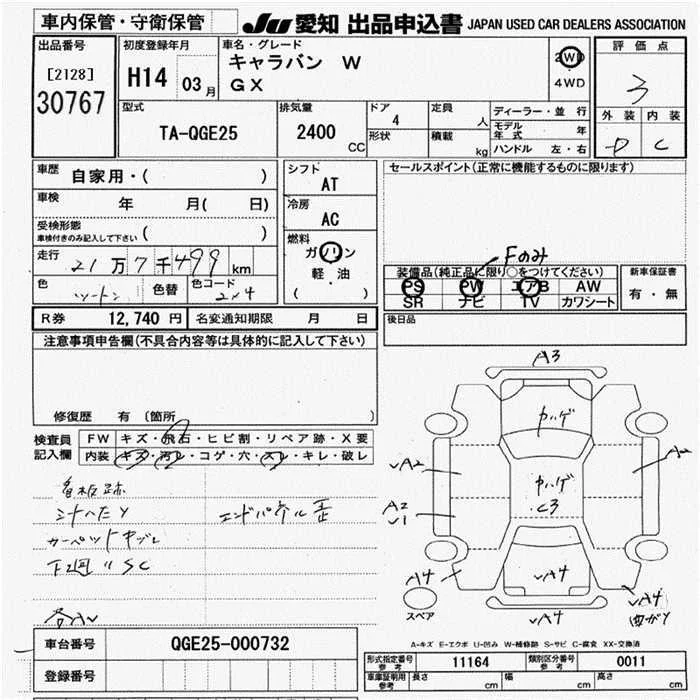 車内保管・守衛保管
JU 愛知 出品申込書 JAPAN USED CAR DEALERS ASSOCIATION
出品番号
[2128]
30767
初度登録年月
H14 03月
車名・グレード
キャラバン W
GX
2WD
4WD
評価点
3
外装 内装
D C
型式
TA-QGE25
排気量
2400
CC
ドア
4
形状
定員
人
積載
kg
ディーラー・並行
モデル年式 年
ハンドル 左・右
車歴
自家用・( )
車検 年 月( 日)
受検形態
車検付きのみ記入して下さい ( )
走行 21万7千499km
色 ツートン 色替 色コード 2x4
シフト
AT
冷房
AC
燃料
ガソリン
軽・油
( )
セールスポイント(正常に機能するものに限ります)
Fのみ
装備品(純正品に限り○をつけてください)
PS PW エアB AW
SR ナビ TV カワシート
新車保証書
有・無
R券 12,740円 名変通知期限 月 日
後日品
注意事項申告欄(不具合内容等は具体的に記入して下さい)
修復歴 有 〔箇所 〕
検査員記入欄
FW キズ・飛石・ヒビ割・リペア跡・X要
内装 キズ・汚れ・コゲ・穴・スレ・キレ・破レ
看板跡
シートヘタY
エンドパネル歪
カーペットキズレ
下廻りSC
A3
カハゲ
A2
A2
カハゲ
C3
A2
1
A4
A4
A4
A4
スペア
A-キズ E-エクボ U-凹み W-補修跡 S-サビ C-腐食 XX-交換済
車台番号 QGE25-000732
登録番号
形式指定番号 参考 11164 類別区分番号 参考 0011
車庫証明用 参考 長さ cm 幅 cm 高さ cm